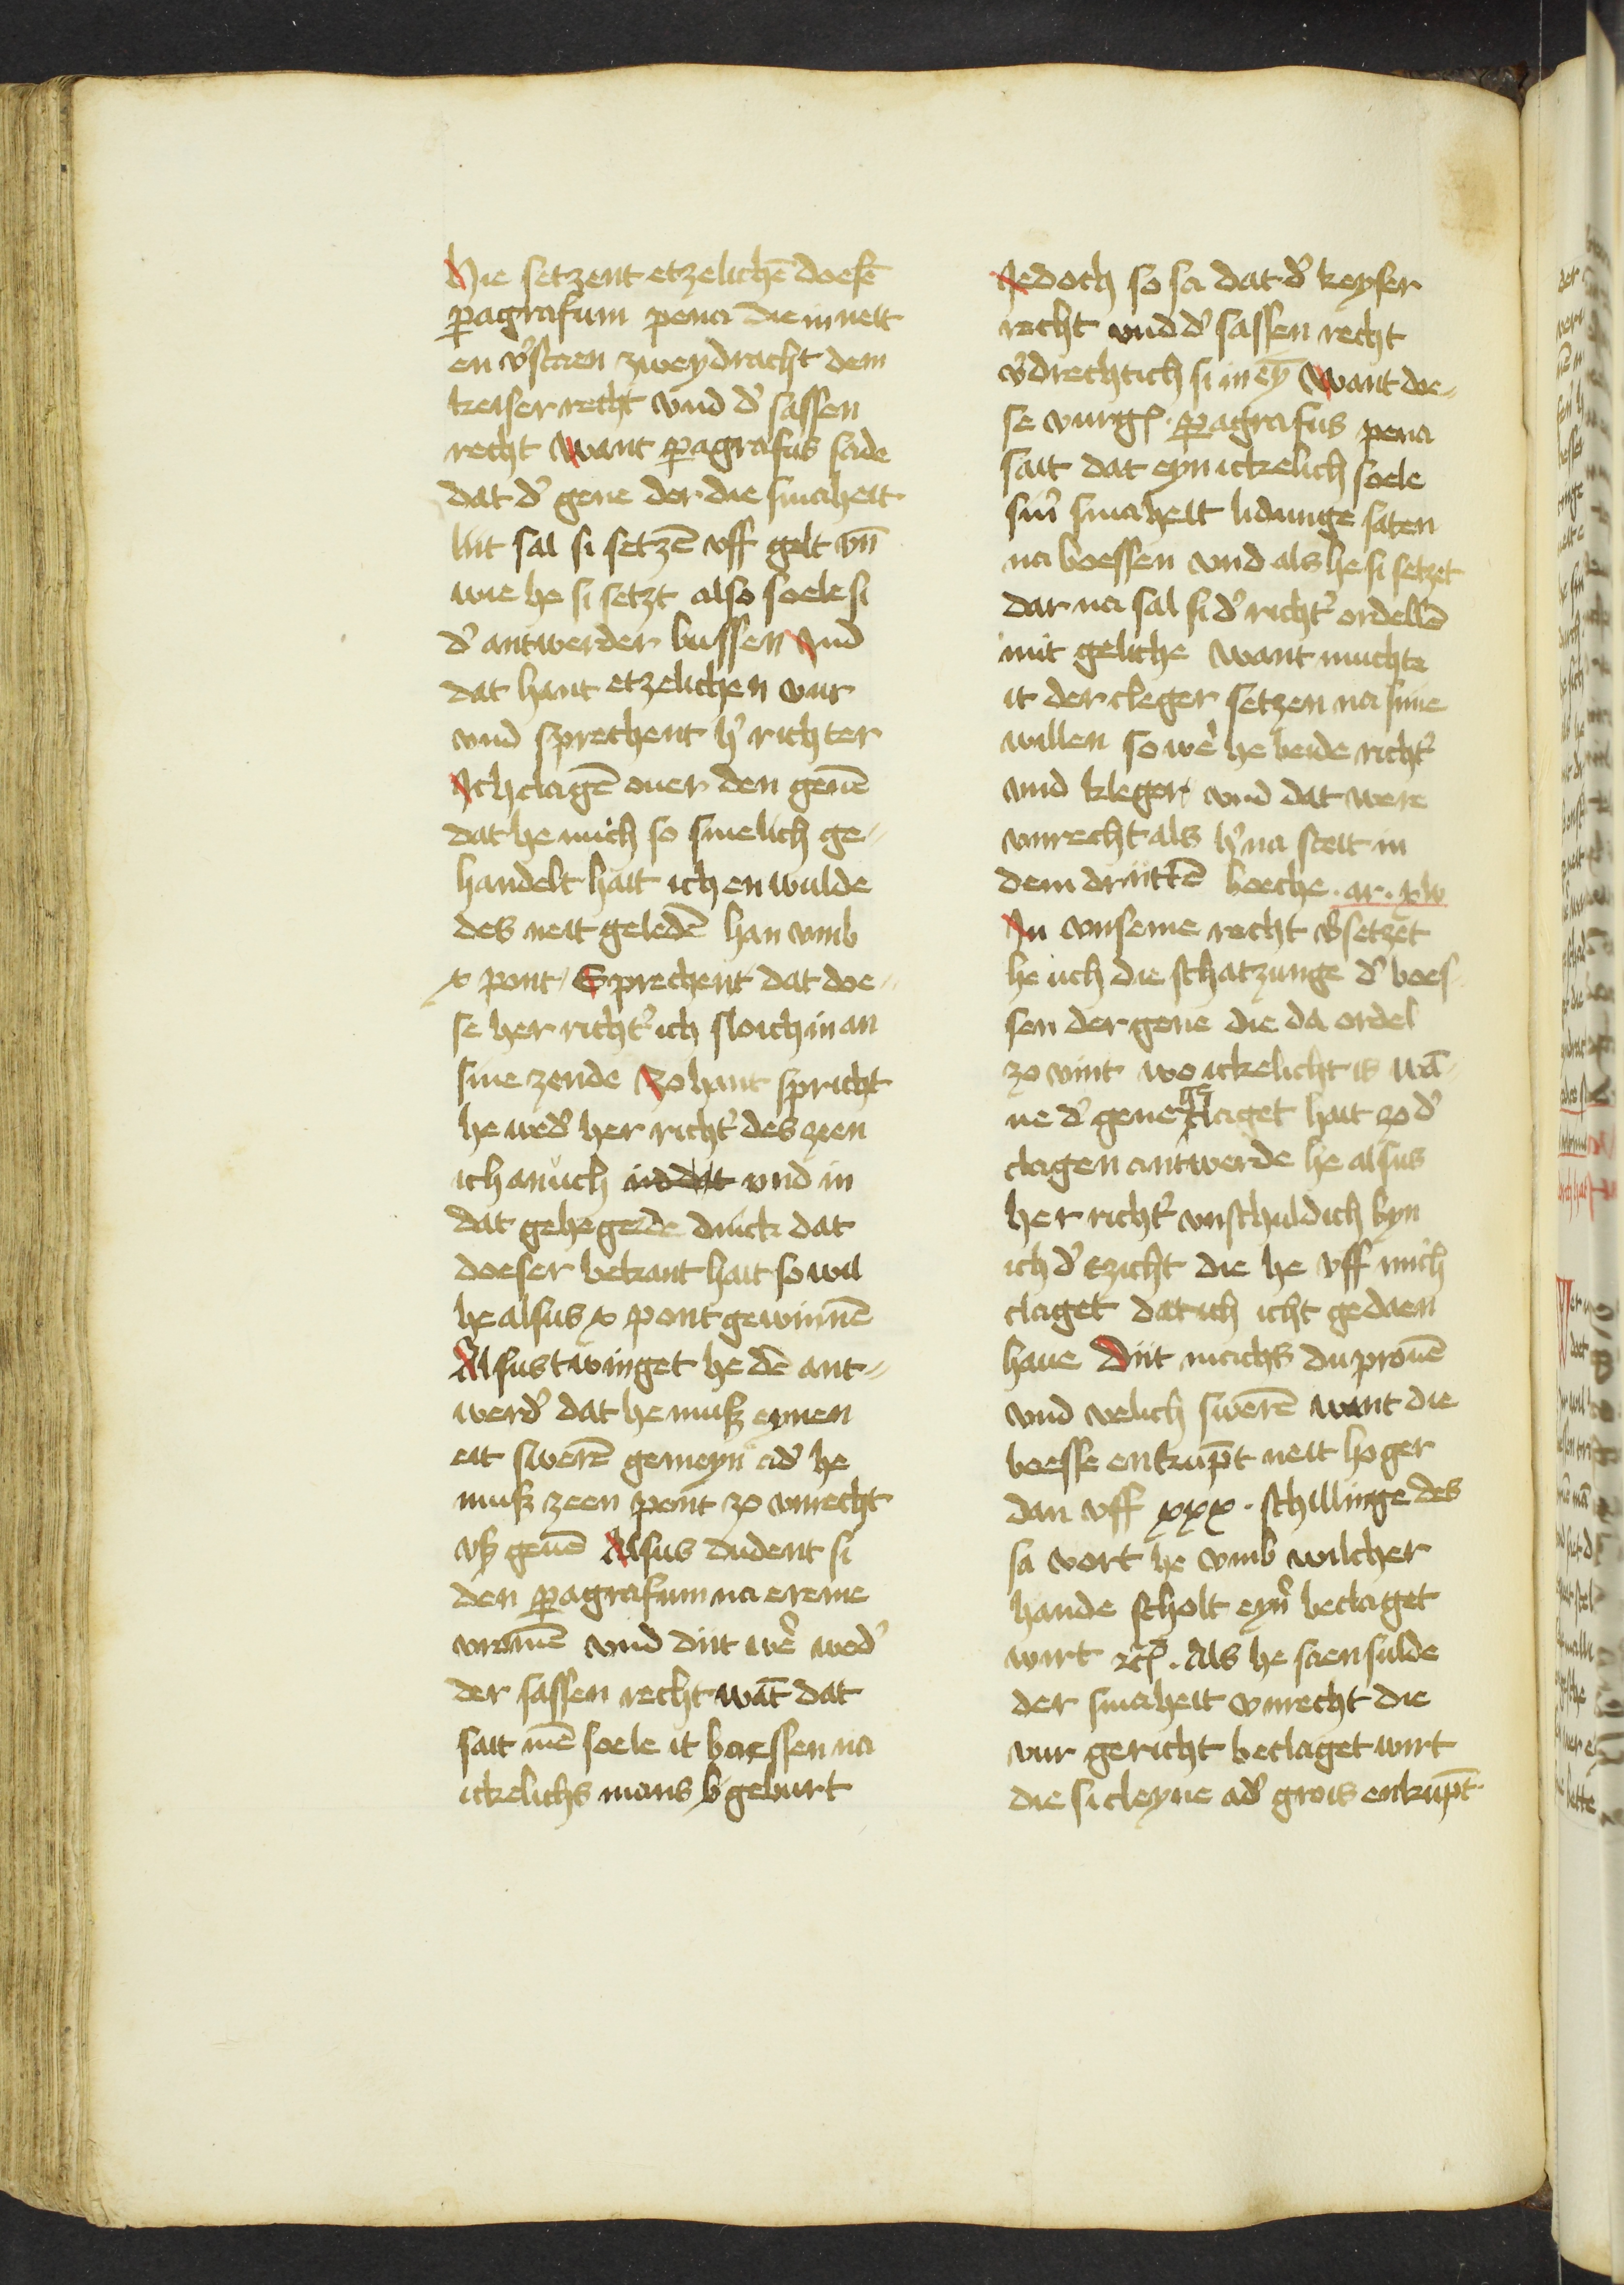 Hie setzent etzelichē doesē
paragrafum pena die in neit
en v'staen zweydracht dem
keiser recht vnd d' sassen
recht Want paragrafus sade
dat d' gene der die smaheit
liit sal si setzē vff gelt vn̄
wie he si setzt also soele si
d' antwerder bussen Vnd
dat hant etzelichen vur
vnd sprechent h' richter
Ich clagē ouer den genē
dat he mich so smelich ge-
handelt hait ich en wulde
des neit geledē han vmb
x pont Sprechent dat doe-
se her richt' ich sloich in an
sine zende Zo hant spricht
he wed' her richt' des zeen
ich an uch vnd in
dat gehegede dinck dat
doeser bekant hait so wil
he alsus x pont gewinnē
Alsus twinget he dē ant-
werd' dat he musz eynen
eit swerē gemeyn ad' he
musz zeen pont zo vnrecht
vsz geuē Alsus dudent si
den paragrafum na ereme
vromē vnd diit wē wed'
der sassen recht wāt dat
sait mē soele it boessen na
ickelichs mans geburt
Jedoch so sa dat d' keyser
recht vnd d' sassen recht
v'drechtich si in ey̅ Want doe-
se vurg. paragrafus pena
sait dat eyn ickelich soele
sin' smaheit lidunge saten
na boessen vnd als he si setzet
dar na sal si d' richt' ordelē
mit geliche want muchte
it der cleger setzen na sime
willen so wē he beide richt'
vnd kleger vnd dat were
vnrecht als h' na steit in
dem driittē boeche . ar . xlv
In vnseme recht v'setzet
he uch die schatzunge d' boes
sen der gene die da ordel
zo vint wo ickelicht is wā-
ne d' gene claget hait zo d'
clagen antwerde he alsus
her richt' vnschuldich byn
ich d' tzicht die he vff mich
claget dat ich icht gedaen
haue Diit machs du prouē
vnd velich swerē want die
boesse enkupt neit hoger
dan vff xxx . schillinge des
sa vort he vmb wilcher
hande scholt eyn' beclaget
wirt etc. Als he saen sulde
der smaheit vnrecht die
vur gericht beclaget wirt
die si cleyne ad' grois enkupt